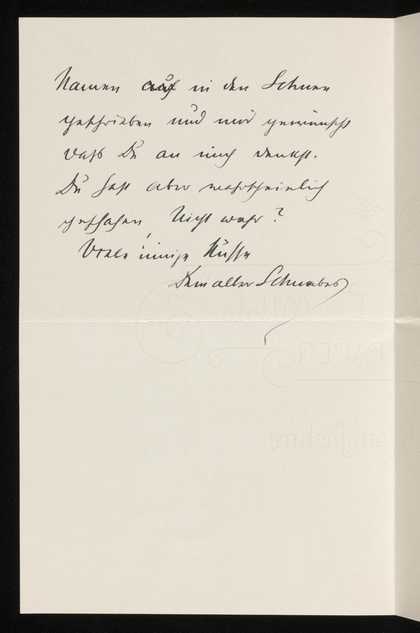 Namen auf in den Schnee
geschrieben und mir gewünscht
daß Du an mich denkst.
Du hast aber wahrscheinlich
geschlafen, Nicht wahr?
Viele innige Küsse
Dein alter